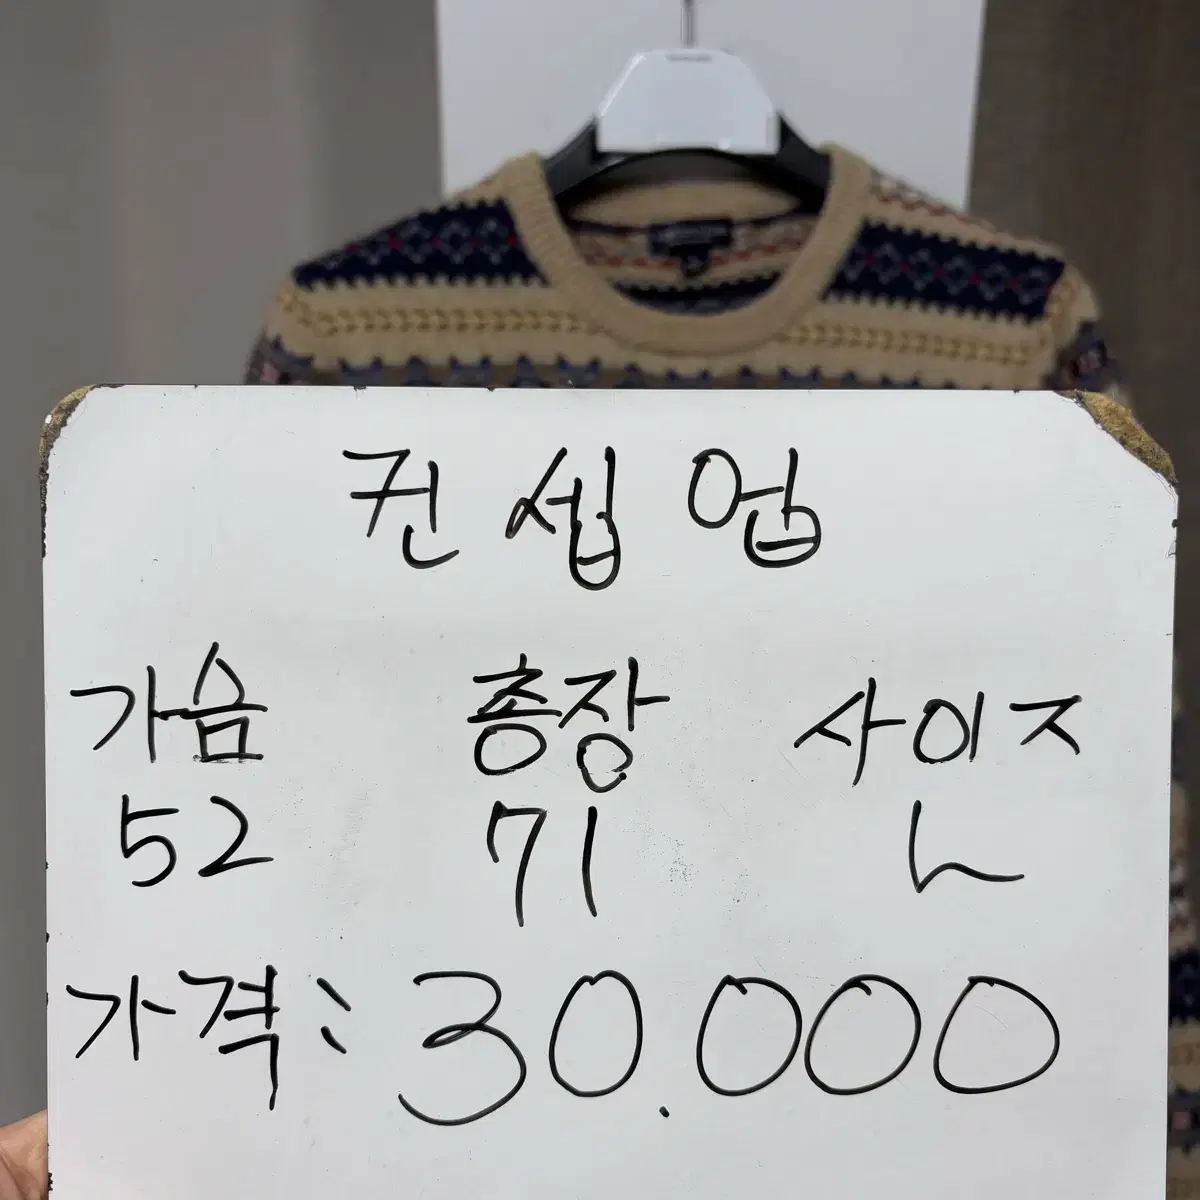 컨셉업
가슴 총장 사이즈
52 71 L
가격: 30.000